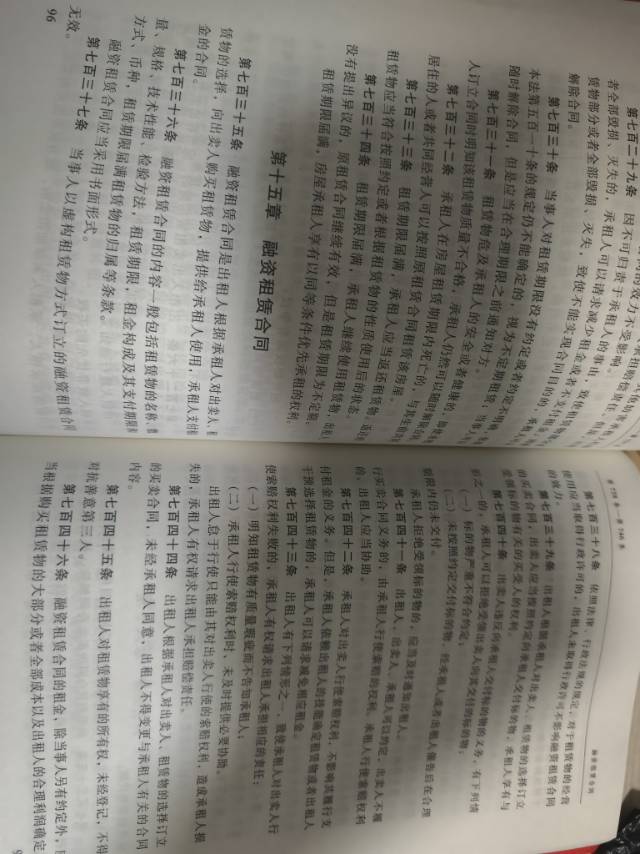 第七百二十九条 因不可归责于承租人的事由，致使租赁
者全部毁损、灭失的，承租人可以请求减少租金或者不支付
赁物部分或者全部毁损、灭失，致使不能实现合同目的的，承租
解除合同。
第七百三十条 当事人对租赁期限没有约定或者约定不明确
本法第五百一十条的规定仍不能确定的，视为不定期租赁；当事人
随时解除合同，但是应当在合理期限之前通知对方。
第七百三十一条 租赁物危及承租人的安全或者健康的，
人订立合同时明知该租赁物质量不合格，承租人仍然可以随时解除
第七百三十二条 承租人在房屋租赁期限内死亡的，与其生前
居住的人或者共同经营人可以按照原租赁合同租赁该房屋。
第七百三十三条 租赁期限届满，承租人应当返还租赁物。返还
租赁物应当符合按照约定或者根据租赁物的性质使用后的状态。
第七百三十四条 租赁期限届满，承租人继续使用租赁物，出租人
没有提出异议的，原租赁合同继续有效，但是租赁期限为不定期。
租赁期限届满，房屋承租人享有以同等条件优先承租的权利。
第十五章 融资租赁合同
第七百三十五条 融资租赁合同是出租人根据承租人对出卖人、租
赁物的选择，向出卖人购买租赁物，提供给承租人使用，承租人支付租
金的合同。
第七百三十六条 融资租赁合同的内容一般包括租赁物的名称、数
量、规格、技术性能、检验方法，租赁期限，租金构成及其支付期限和
方式、币种，租赁期限届满租赁物的归属等条款。
融资租赁合同应当采用书面形式。
第七百三十七条 当事人以虚构租赁物方式订立的融资租赁合同
无效。
96
融资租赁合同
第七百三十八条 依照法律、行政法规的规定，对于租赁物的经营
使用应当取得行政许可的，出租人未取得行政许可不影响融资租赁合同
的效力。
第七百三十九条 出租人根据承租人对出卖人、租赁物的选择订立
的买卖合同，出卖人应当按照约定向承租人交付标的物，承租人享有与
受领标的物有关的买受人的权利。
第七百四十条 出卖人违反向承租人交付标的物的义务，有下列情
形之一的，承租人可以拒绝受领出卖人向其交付的标的物：
（一）标的物严重不符合约定；
（二）未按照约定交付标的物，经承租人或者出租人催告后在合理
期限内仍未交付。
承租人拒绝受领标的物的，应当及时通知出租人。
第七百四十一条 出租人、出卖人、承租人可以约定，出卖人不履
行买卖合同义务的，由承租人行使索赔的权利。承租人行使索赔权利
的，出租人应当协助。
第七百四十二条 承租人对出卖人行使索赔权利，不影响其履行支
付租金的义务。但是，承租人依赖出租人的技能确定租赁物或者出租人
干预选择租赁物的，承租人可以请求减免相应租金。
第七百四十三条 出租人有下列情形之一，致使承租人对出卖人行
使索赔权利失败的，承租人有权请求出租人承担相应的责任：
（一）明知租赁物有质量瑕疵而不告知承租人；
（二）承租人行使索赔权利时，未及时提供必要协助。
出租人怠于行使只能由其对出卖人行使的索赔权利，造成承租人损
失的，承租人有权请求出租人承担赔偿责任。
第七百四十四条 出租人根据承租人对出卖人、租赁物的选择订立
的买卖合同，未经承租人同意，出租人不得变更与承租人有关的合同
内容。
第七百四十五条 出租人对租赁物享有的所有权，未经登记，不得
对抗善意第三人。
第七百四十六条 融资租赁合同的租金，除当事人另有约定外，
当根据购买租赁物的大部分或者全部成本以及出租人的合理利润确定